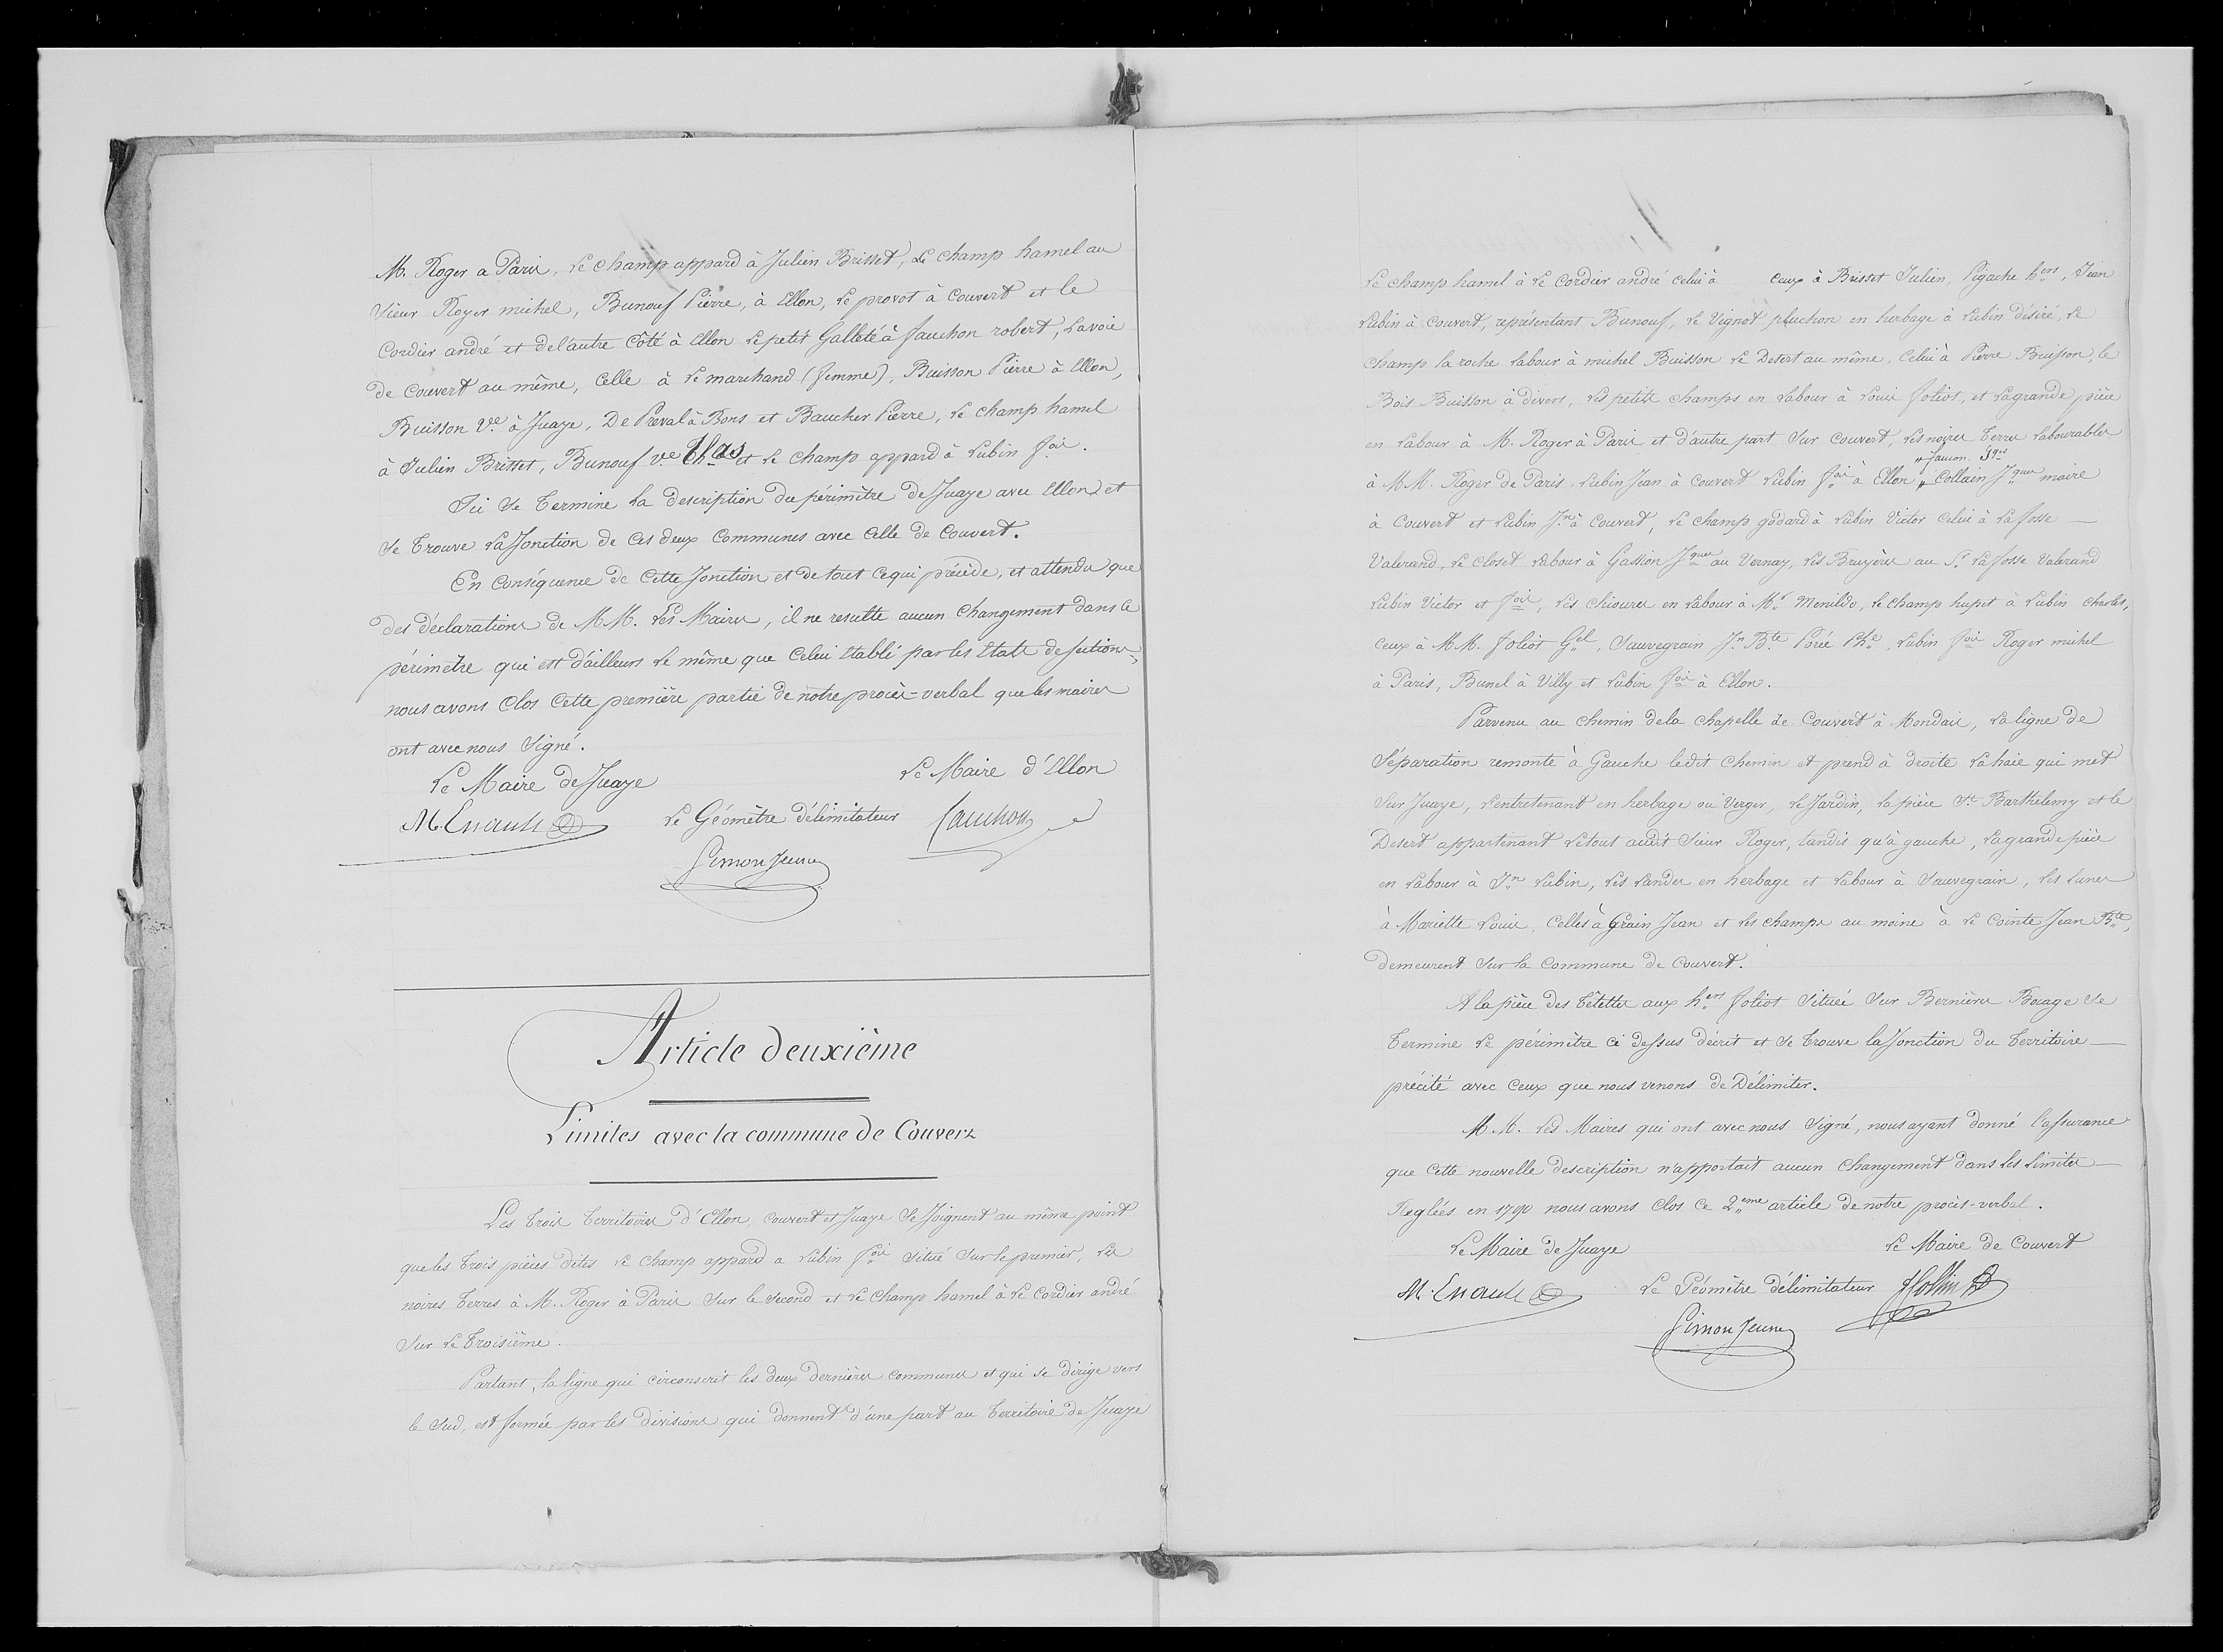 M. Roger a Paris, Le champ appard à Julien Brisset, Le champ hamel au
Sieur Roger michel, Bunouf Pierre, à Ellon, Le provot à Couvert et le
Cordier andré et de l'autre Côté à Ellon Le petit Galleté à fauchon robert, La voie
de Couvert au même, Celle à Le marchand (femme), Buisson Pierre à Ellon,
Buisson Ve. à Juaye, De Preval à Bons et Baucher Pierre, Le champ hamel
à Julien Brisset, Bunouf ve. Thas et Le champ appard à Lubin fois.
Ici Se Termine La description du périmètre de Juaye avec Ellon et
Se Trouve La Jonction de Ces deux Communes avec Celle de Couvert.
En Conséquence de Cette Jonction et de tout Ce qui précède, et attendu que
des déclarations de M.M. Les Maires, il ne resulte aucun Changement dans le
périmètre qui est d'ailleurs Le même que Celui Etabli par les Etats de sections,
nous avons Clos Cette première partie de notre procès-verbal que les maires
ont avec nous Signé.
Le Maire de Juaye
Le Maire d'Ellon
M. Enault
Le Géomètre délimitateur
fauchon
Simon Jeune
Article deuxième
Limites avec la commune de Couvert
Les Trois Territoires d'Ellon, Couvert et Juaye Se Joignent au même point
que les Trois pièces dites Le Champ appard a Lubin fois Situé Sur le premier, Les
noires Terres à M. Roger à Paris Sur le Second et Le Champ hamel à Le Cordier andré
Sur Le Troisième.
Partant, la ligne qui circonscrit les deux dernières Communes et qui se dirige vers
le Sud, est formée par les divisions qui donnent d'une part au Territoire de Juaye
Le champ hamel à Le Cordier andré celui à ceux à Brisset Julien, Pigache hers, Jean
Lubin à Couvert, représentant Bunouf, Le Vignot pluchon en herbage à Lubin désiré, Le
Champ la roche Labour à michel Buisson Le Desert au même, Celui à Pierre Buisson, le
Bois Buisson à divers, Les petits Champs en Labour à Louis Joliot, et La grande pièce
en Labour à M. Roger à Paris et d'autre part Sur Couvert, Les noires Terres Labourables
à M.M. Roger de Paris, Lubin Jean à Couvert Lubin fois à Ellon, Collain Jques maire
à Couvert et Lubin Jn. à Couvert, Le Champ godard à Lubin Victor Celui à La fosse
Valerand, Le Closet Labour à Gassion Jques au Vernay, Les Bruyères au Sr. La fosse Valerand
Lubin Victor et fois, Les en Labour à Mr. Menildo, Le Champ hupet à Lubin Charles,
Ceux à M.M. Joliot Gel, Sauvegrain Jn. Bte. Porée Phe, Lubin fois Roger michel
à Paris, Bunel à Villy et Lubin fois à Ellon.
Parvenu au Chemin de la Chapelle de Couvert à Mondaie, La ligne de
Séparation remonte à Gauche ledit Chemin et prend à droite La haie qui met
Sur Juaye, L'entretenant en herbage ou Verger, Le Jardin, la pièce St. Barthelemy et le
Desert appartenant Le tout audit Sieur Roger, tandis qu'à gauche, La grande pièce
en Labour à Jn Lubin, Les Landes en herbage et Labour à Sauvegrain, Les Lunes
à Mariette Louis, Celles à Grain Jean et Les Champs au moine à Le Cointe Jean Bte.,
demeurent Sur la Commune de Couvert.
A la pièce des Têtettes aux hers Joliot Située Sur Bernières Bocage Se
Termine Le périmètre Ci dessus décrit et Se Trouve la Jonction du Territoire
précité avec Ceux que nous venons de Délimiter.
M.M. Les Maires qui ont avec nous Signé, nous ayant donné l'assurance
que Cette nouvelle description n'apportait aucun Changement dans les Limites
Reglées en 1790 nous avons Clos Ce 2eme article de notre procès-verbal.
Le Maire de Juaye
Le Maire de Couvert
M. Enault
Le Géomètre délimitateur
Collin
Simon Jeune